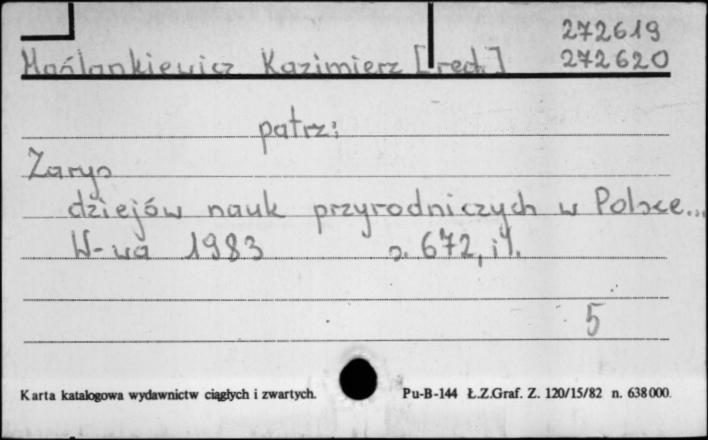 272619
Maślankiewicz Kazimierz [red.] 272620
patrz:
Zarys
dziejów nauk przyrodniczych w Polsce...
W-wa 1983 s. 672, il.
5
Karta katalogowa wydawnictw ciągłych i zwartych. Pu-B-144 Ł.Z.Graf. Z. 120/15/82 n. 638000.